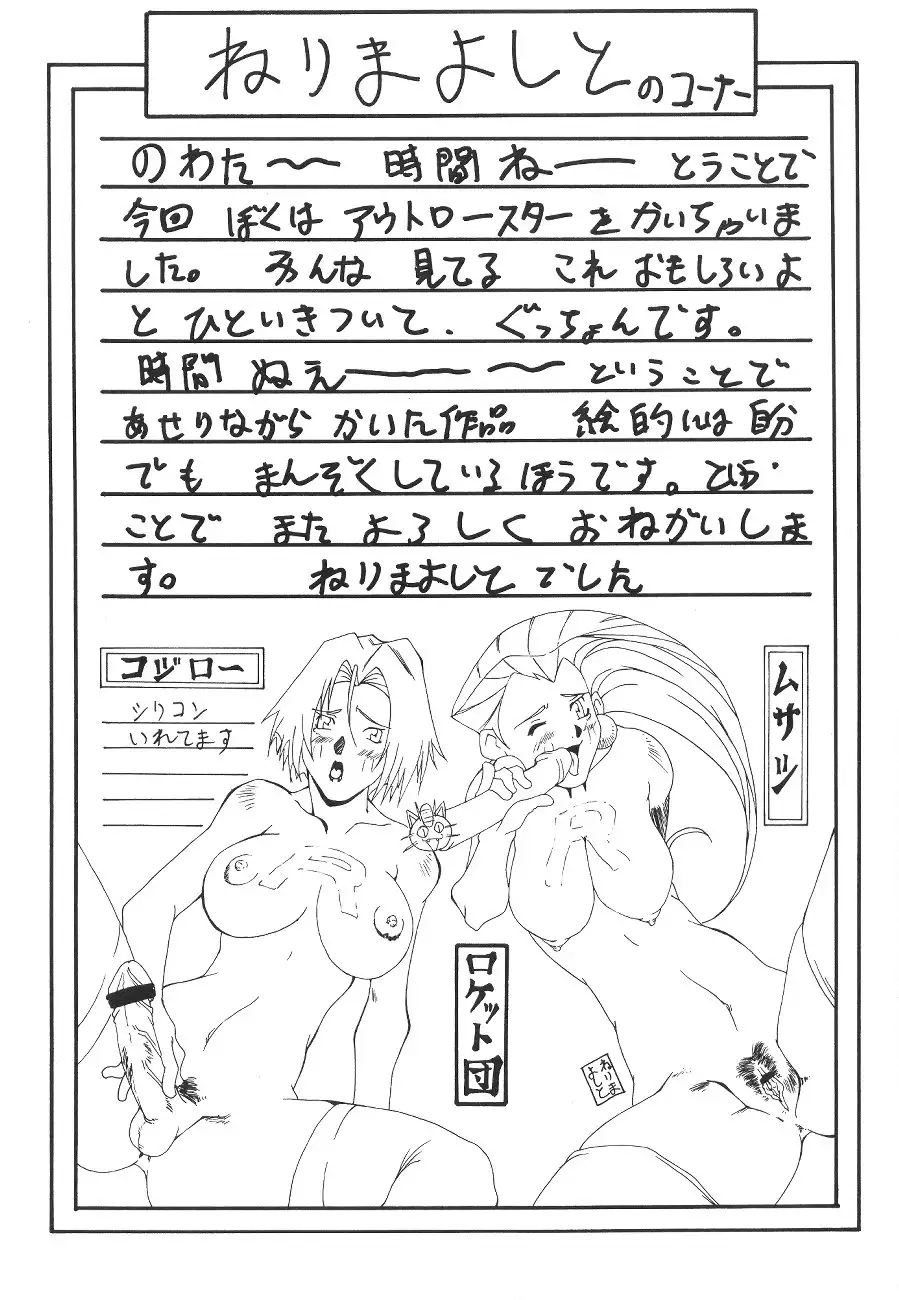 ねりまよしと のコーナー
のわた〜〜 時間ね―― とうことで
今回 ぼくは アウトロースター を かいちゃいま
した。 みんな 見てる これ おもしろいよ
と ひといきついて、 ぐっちょんです。
時間 ぬえ――〜 ということで
あせりながら かいた作品 絵的には 自分
でも まんぞくしているほうです。
ことで また よろしく おねがいしま
す。 ねりまよしと でした
コジロー
シリコン
いれてます
ムサシ
ロケット団
ねりま
よしと